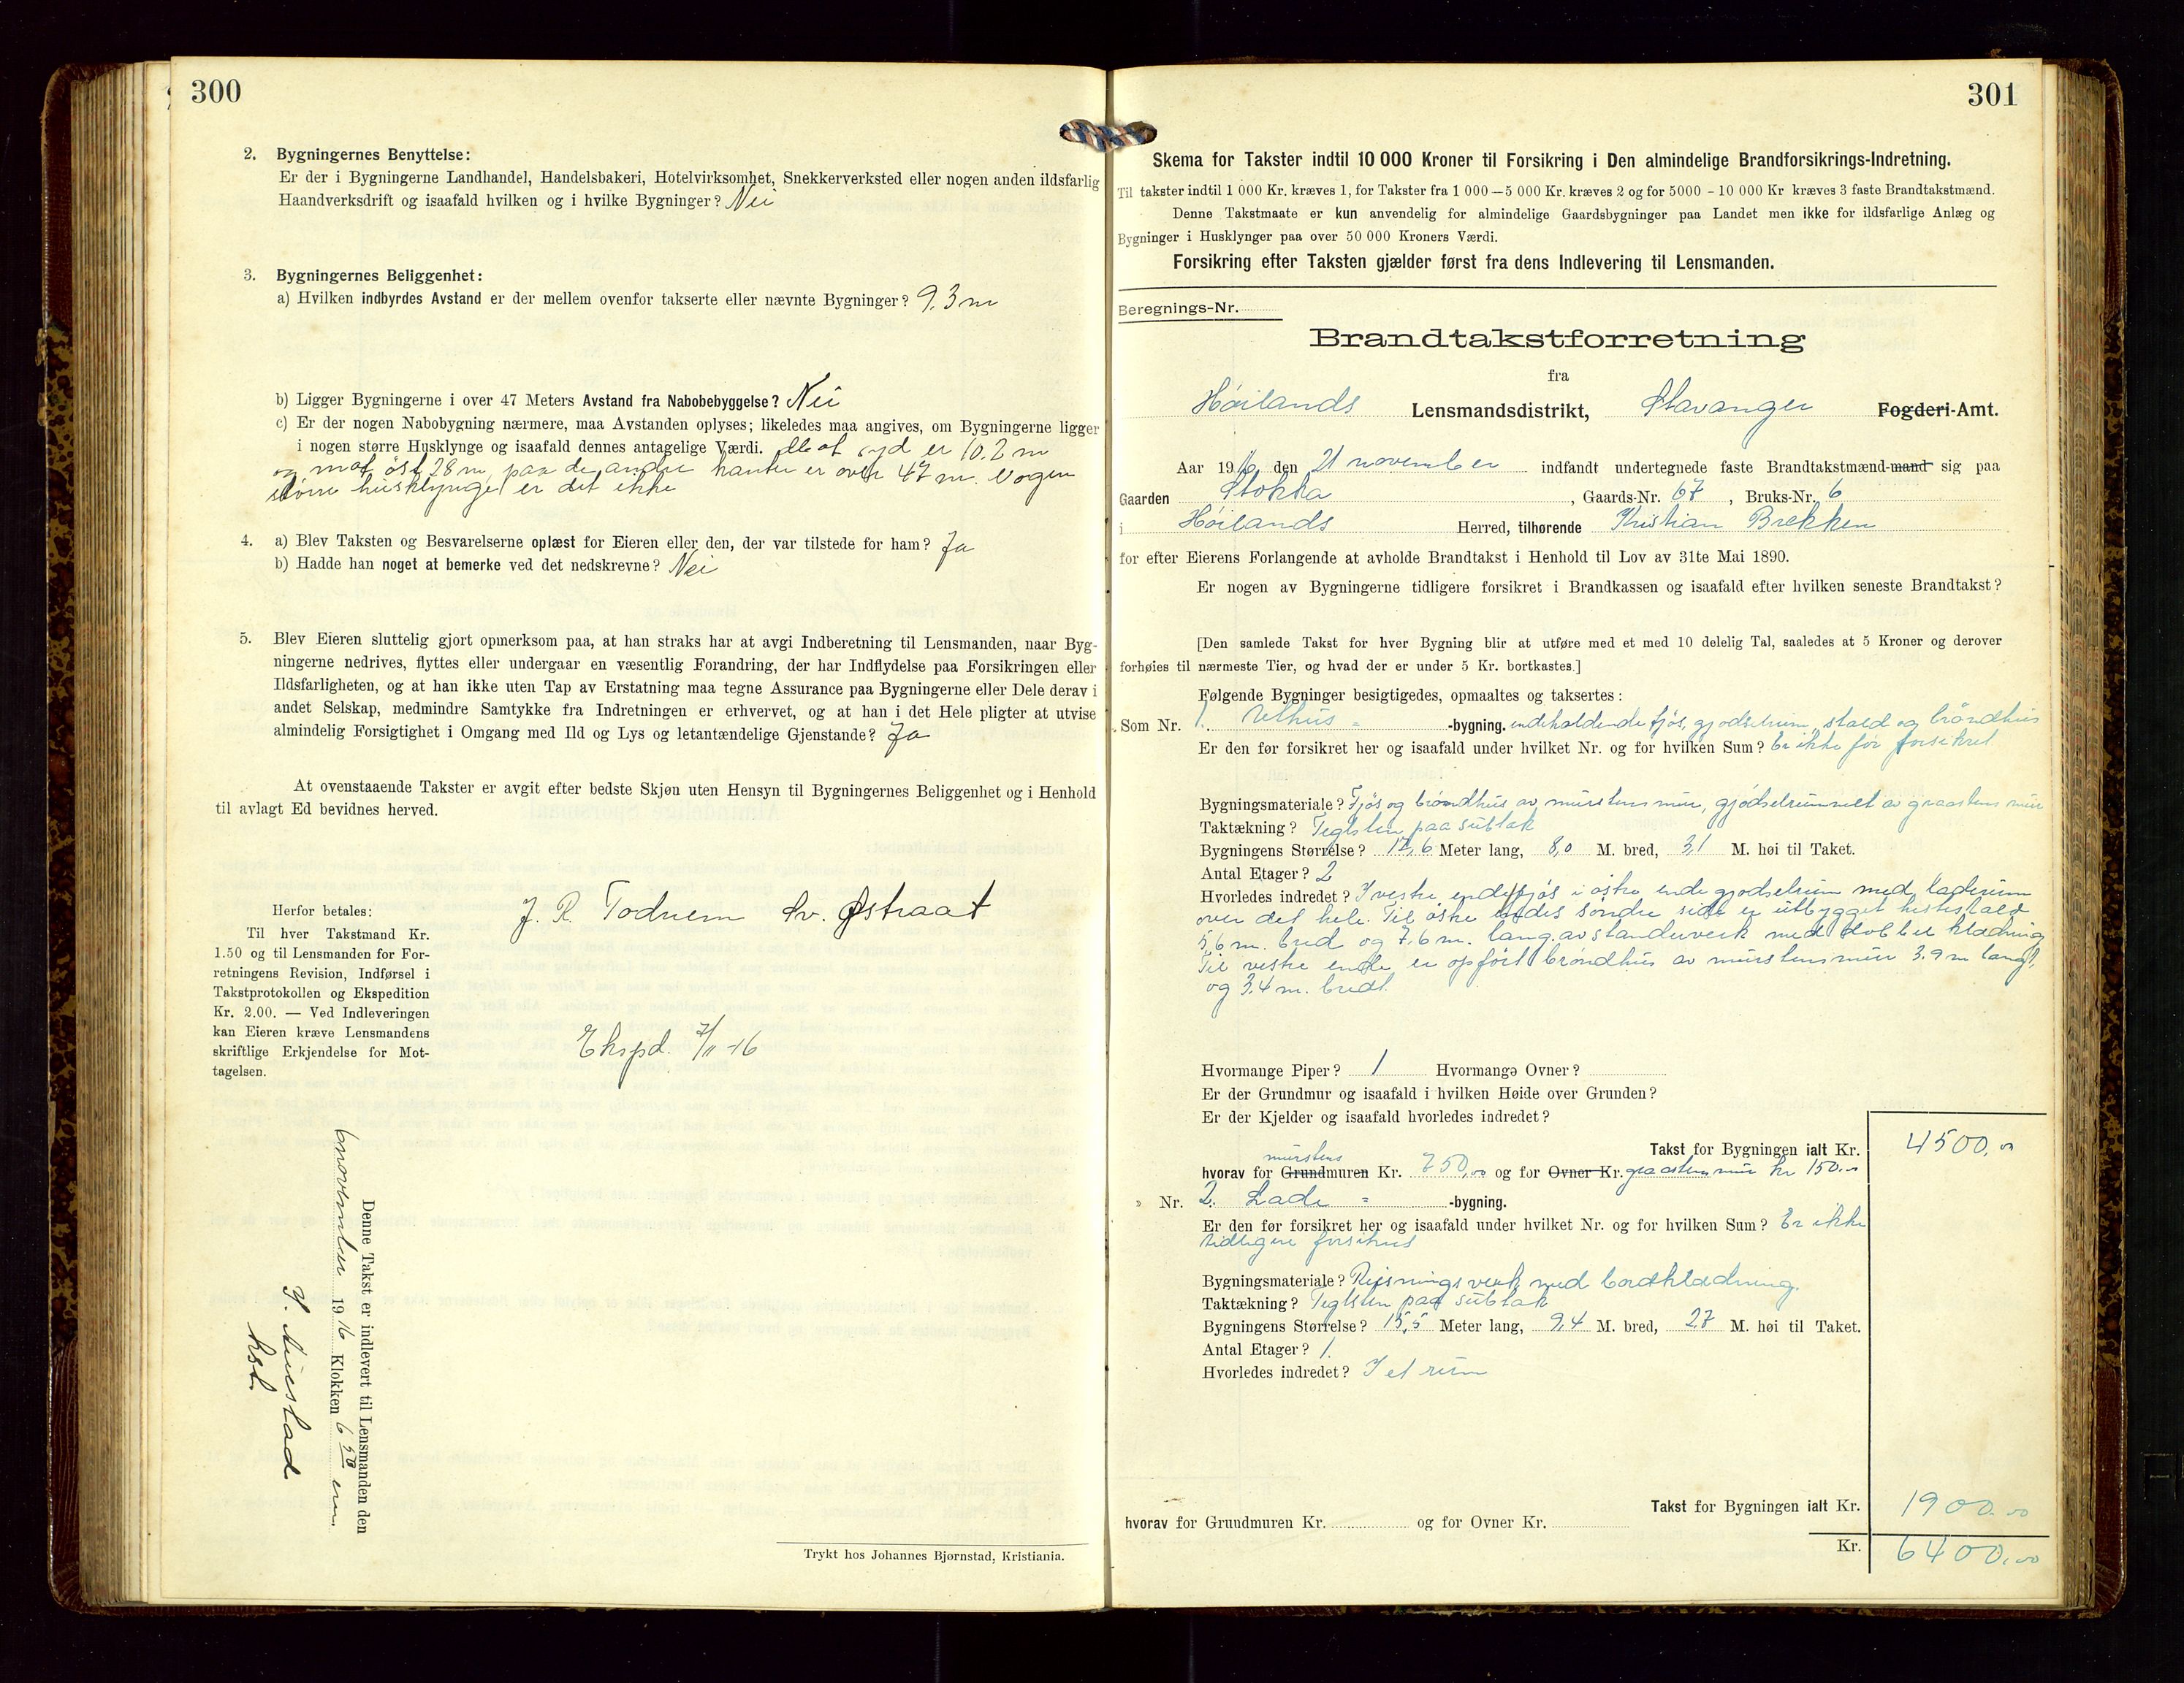 300
2. Bygningernes Benyttelse:
Er der i Bygningerne Landhandel, Handelsbakeri, Hotelvirksomhet, Snekkerverksted eller nogen anden ildsfarlig
Haandverksdrift og isaafald hvilken og i hvilke Bygninger? Nei
3. Bygningernes Beliggenhet:
a) Hvilken indbyrdes Avstand er der mellem ovenfor takserte eller nævnte Bygninger? 9.3 m
b) Ligger Bygningerne i over 47 Meters Avstand fra Nabobebyggelse? Nei
c) Er der nogen Nabobygning nærmere, maa Avstanden oplyses; likeledes maa angives, om Bygningerne ligger
i nogen større Husklynge og isaafald dennes antagelige Værdi. Mot syd er 10.2 m
og mot øst 28 m, paa de andre kanter er over 47 m. Nogen
större husklynge er det ikke
4. a) Blev Taksten og Besvarelserne oplæst for Eieren eller den, der var tilstede for ham? Ja
b) Hadde han noget at bemerke ved det nedskrevne? Nei
5. Blev Eieren sluttelig gjort opmerksom paa, at han straks har at avgi Indberetning til Lensmanden, naar Byg-
ningerne nedrives, flyttes eller undergaar en væsentlig Forandring, der har Indflydelse paa Forsikringen eller
Ildsfarligheten, og at han ikke uten Tap av Erstatning maa tegne Assurance paa Bygningerne eller Dele derav i
andet Selskap, medmindre Samtykke fra Indretningen er erhvervet, og at han i det Hele pligter at utvise
almindelig Forsigtighet i Omgang med Ild og Lys og letantændelige Gjenstande? Ja
At ovenstaaende Takster er avgit efter bedste Skjøn uten Hensyn til Bygningernes Beliggenhet og i Henhold
til avlagt Ed bevidnes herved.
J. R. Todnem Sv. Østraat
Herfor betales:
Til hver Takstmand Kr.
1.50 og til Lensmanden for For-
retningens Revision, Indførsel i
Takstprotokollen og Ekspedition
Kr. 2.00. — Ved Indleveringen
kan Eieren kræve Lensmandens
skriftlige Erkjendelse for Mot-
tagelsen.
Ekspd. 7/11-16
Denne Takst er indlevert til Lensmanden den
6 november 1916 Klokken 6 50 em.
Trykt hos Johannes Bjørnstad, Kristiania.
301
Skema for Takster indtil 10 000 Kroner til Forsikring i Den almindelige Brandforsikrings-Indretning.
Til takster indtil 1 000 Kr. kræves 1, for Takster fra 1 000 — 5 000 Kr. kræves 2 og for 5000 - 10 000 Kr kræves 3 faste Brandtakstmænd.
Denne Takstmaate er kun anvendelig for almindelige Gaardsbygninger paa Landet men ikke for ildsfarlige Anlæg og
Bygninger i Husklynger paa over 50 000 Kroners Værdi.
Forsikring efter Taksten gjælder først fra dens Indlevering til Lensmanden.
Beregnings-Nr.
Brandtakstforretning
fra
Höilands Lensmandsdistrikt, Stavanger Fogderi-Amt.
Aar 1916 den 21 november indfandt undertegnede faste Brandtakstmænd-mand sig paa
Gaarden Stokka, Gaards-Nr. 67, Bruks-Nr. 6
i Höilands Herred, tilhørende Kristian Brekken
for efter Eierens Forlangende at avholde Brandtakst i Henhold til Lov av 31te Mai 1890.
Er nogen av Bygningerne tidligere forsikret i Brandkassen og isaafald efter hvilken seneste Brandtakst?
[Den samlede Takst for hver Bygning blir at utføre med et med 10 delelig Tal, saaledes at 5 Kroner og derover
forhøies til nærmeste Tier, og hvad der er under 5 Kr. bortkastes.]
Følgende Bygninger besigtigedes, opmaaltes og taksertes:
Som Nr. 1. Uthus = -bygning. indeholdende fjös, gjödselrum, stald og bröndhus
Er den før forsikret her og isaafald under hvilket Nr. og for hvilken Sum? Er ikke för forsikret
Bygningsmateriale? Fjös og bröndhus av murstensmur, gjödselrummet av graastens mur
Taktækning? Teglsten paa sutak
Bygningens Størrelse? 12,6 Meter lang, 8,0 M. bred, 3,1 M. høi til Taket.
Antal Etager? 2
Hvorledes indredet? I vestre ende fjös i östre ende gjödselrum med laderum
over det hele. Til östre endes söndre side er utbygget hestestald
5,6 m. bred og 7,6 m. lang. av standerverk med dobbel klædning
Til vestre ende er opfört bröndhus av murstensmur 3.9 m langt,
og 3.4 m. bredt.
Hvormange Piper? 1 Hvormange Ovner?
Er der Grundmur og isaafald i hvilken Høide over Grunden?
Er der Kjelder og isaafald hvorledes indredet?
Takst for Bygningen ialt Kr. 4500,00
murstens
hvorav for Grundmuren Kr. 750,00 og for Ovner Kr. graastensmur kr 150.00
» Nr. 2. Lade = -bygning.
Er den før forsikret her og isaafald under hvilket Nr. og for hvilken Sum? Er ikke
tidligere forsikret
Bygningsmateriale? Reisningsverk med bordklædning.
Taktækning? Teglsten paa sutak
Bygningens Størrelse? 15,5 Meter lang, 9,4 M. bred, 2,7 M. høi til Taket.
Antal Etager? 1.
Hvorledes indredet? I et rum
Takst for Bygningen ialt Kr. 1900.00
hvorav for Gruudmuren Kr. og for Ovner Kr.
Kr. 6400,00